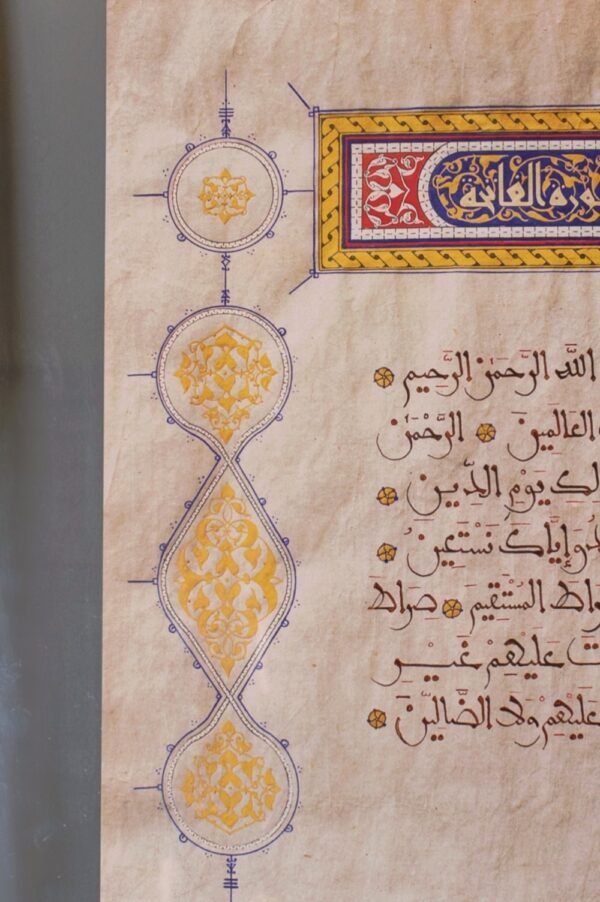 الفاتحة
اللَّهِ الرَّحْمَنِ الرَّحِيمِ
الْعَالَمِينَ الرَّحْمَنِ
يَوْمِ الدِّينِ
وَإِيَّاكَ نَسْتَعِينُ
الْمُسْتَقِيمَ صِرَاطَ
عَلَيْهِمْ غَيْرِ
عَلَيْهِمْ وَلَا الضَّالِّينَ